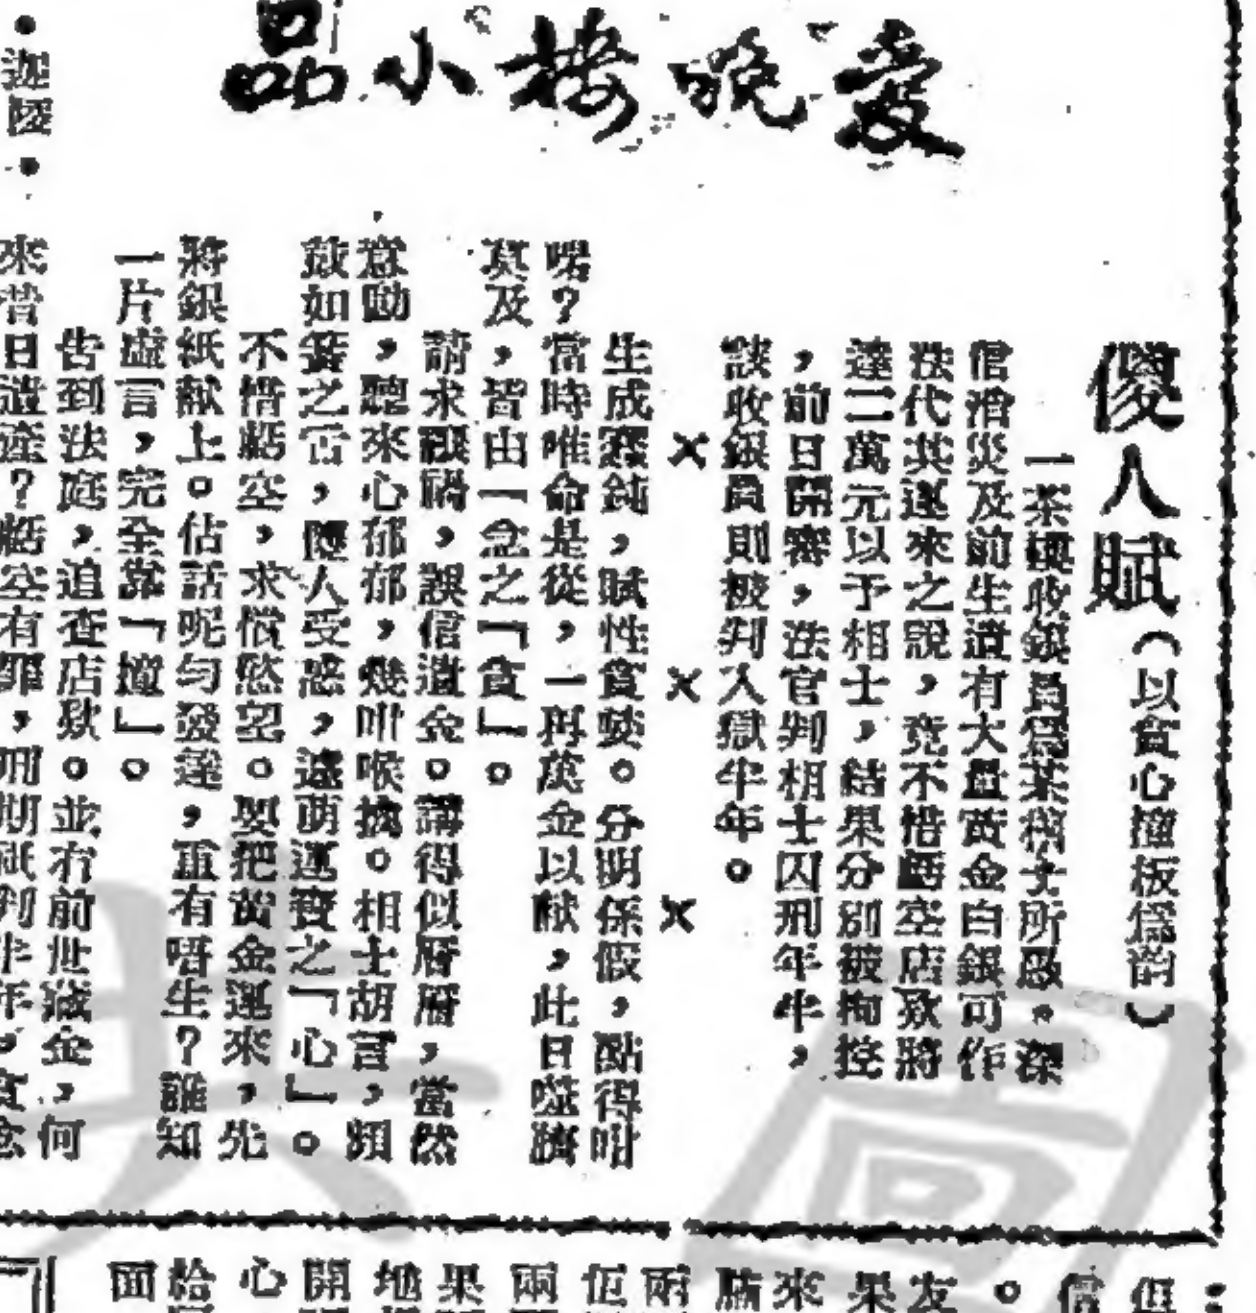 愛晚樓小品
傻人賦（以貪心撞板爲韵）
一茶樓收銀員爲某相士所惑。深
信消災及前生遺有大量黃金白銀可作
法代其運來之說，竟不惜虧空店欵將
達二萬元以予相士，結果分別被拘控
，前日開審，法官判相士囚刑年半，
該收銀員則被判入獄半年。
X X X
生成蠢鈍，賦性貪婪。分明係假，點得咁
啱？當時唯命是從，一再萬金以献，此日噬臍
莫及，皆由一念之「貪」。
請求禳禍，誤信遺金。講得似層層，當然
意動，聽來心郁郁，幾咁喉擒。相士胡言，頻
鼓如簧之舌，隱人受惑，遽萌運寶之「心」。
不惜虧空，求償慾望。要把黃金運來，先
將銀紙献上。估話呢勻發達，重有唔生？誰知
一片虛言，完全靠「撞」。
告到法庭，追查店欵。並冇前世藏金，何
來昔日遺產？虧空有罪，刑期祇判半年，貪念
·迦陵·